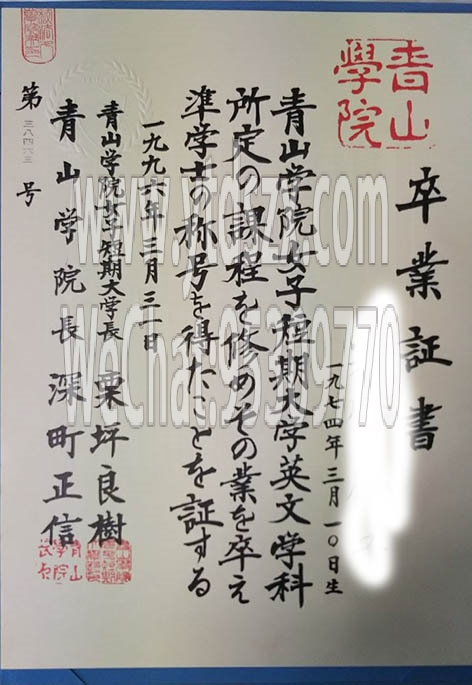 青山
學院
卒業証書
一九七四年三月一〇日生
青山学院女子短期大学英文学科
所定の課程を修めその業を卒え
準学士の称号を得たことを証する
一九九六年三月三一日
青山学院女子短期大学長 栗坪良樹
青山学院長 深町正信
第三八四六三号
WeChat:95399770